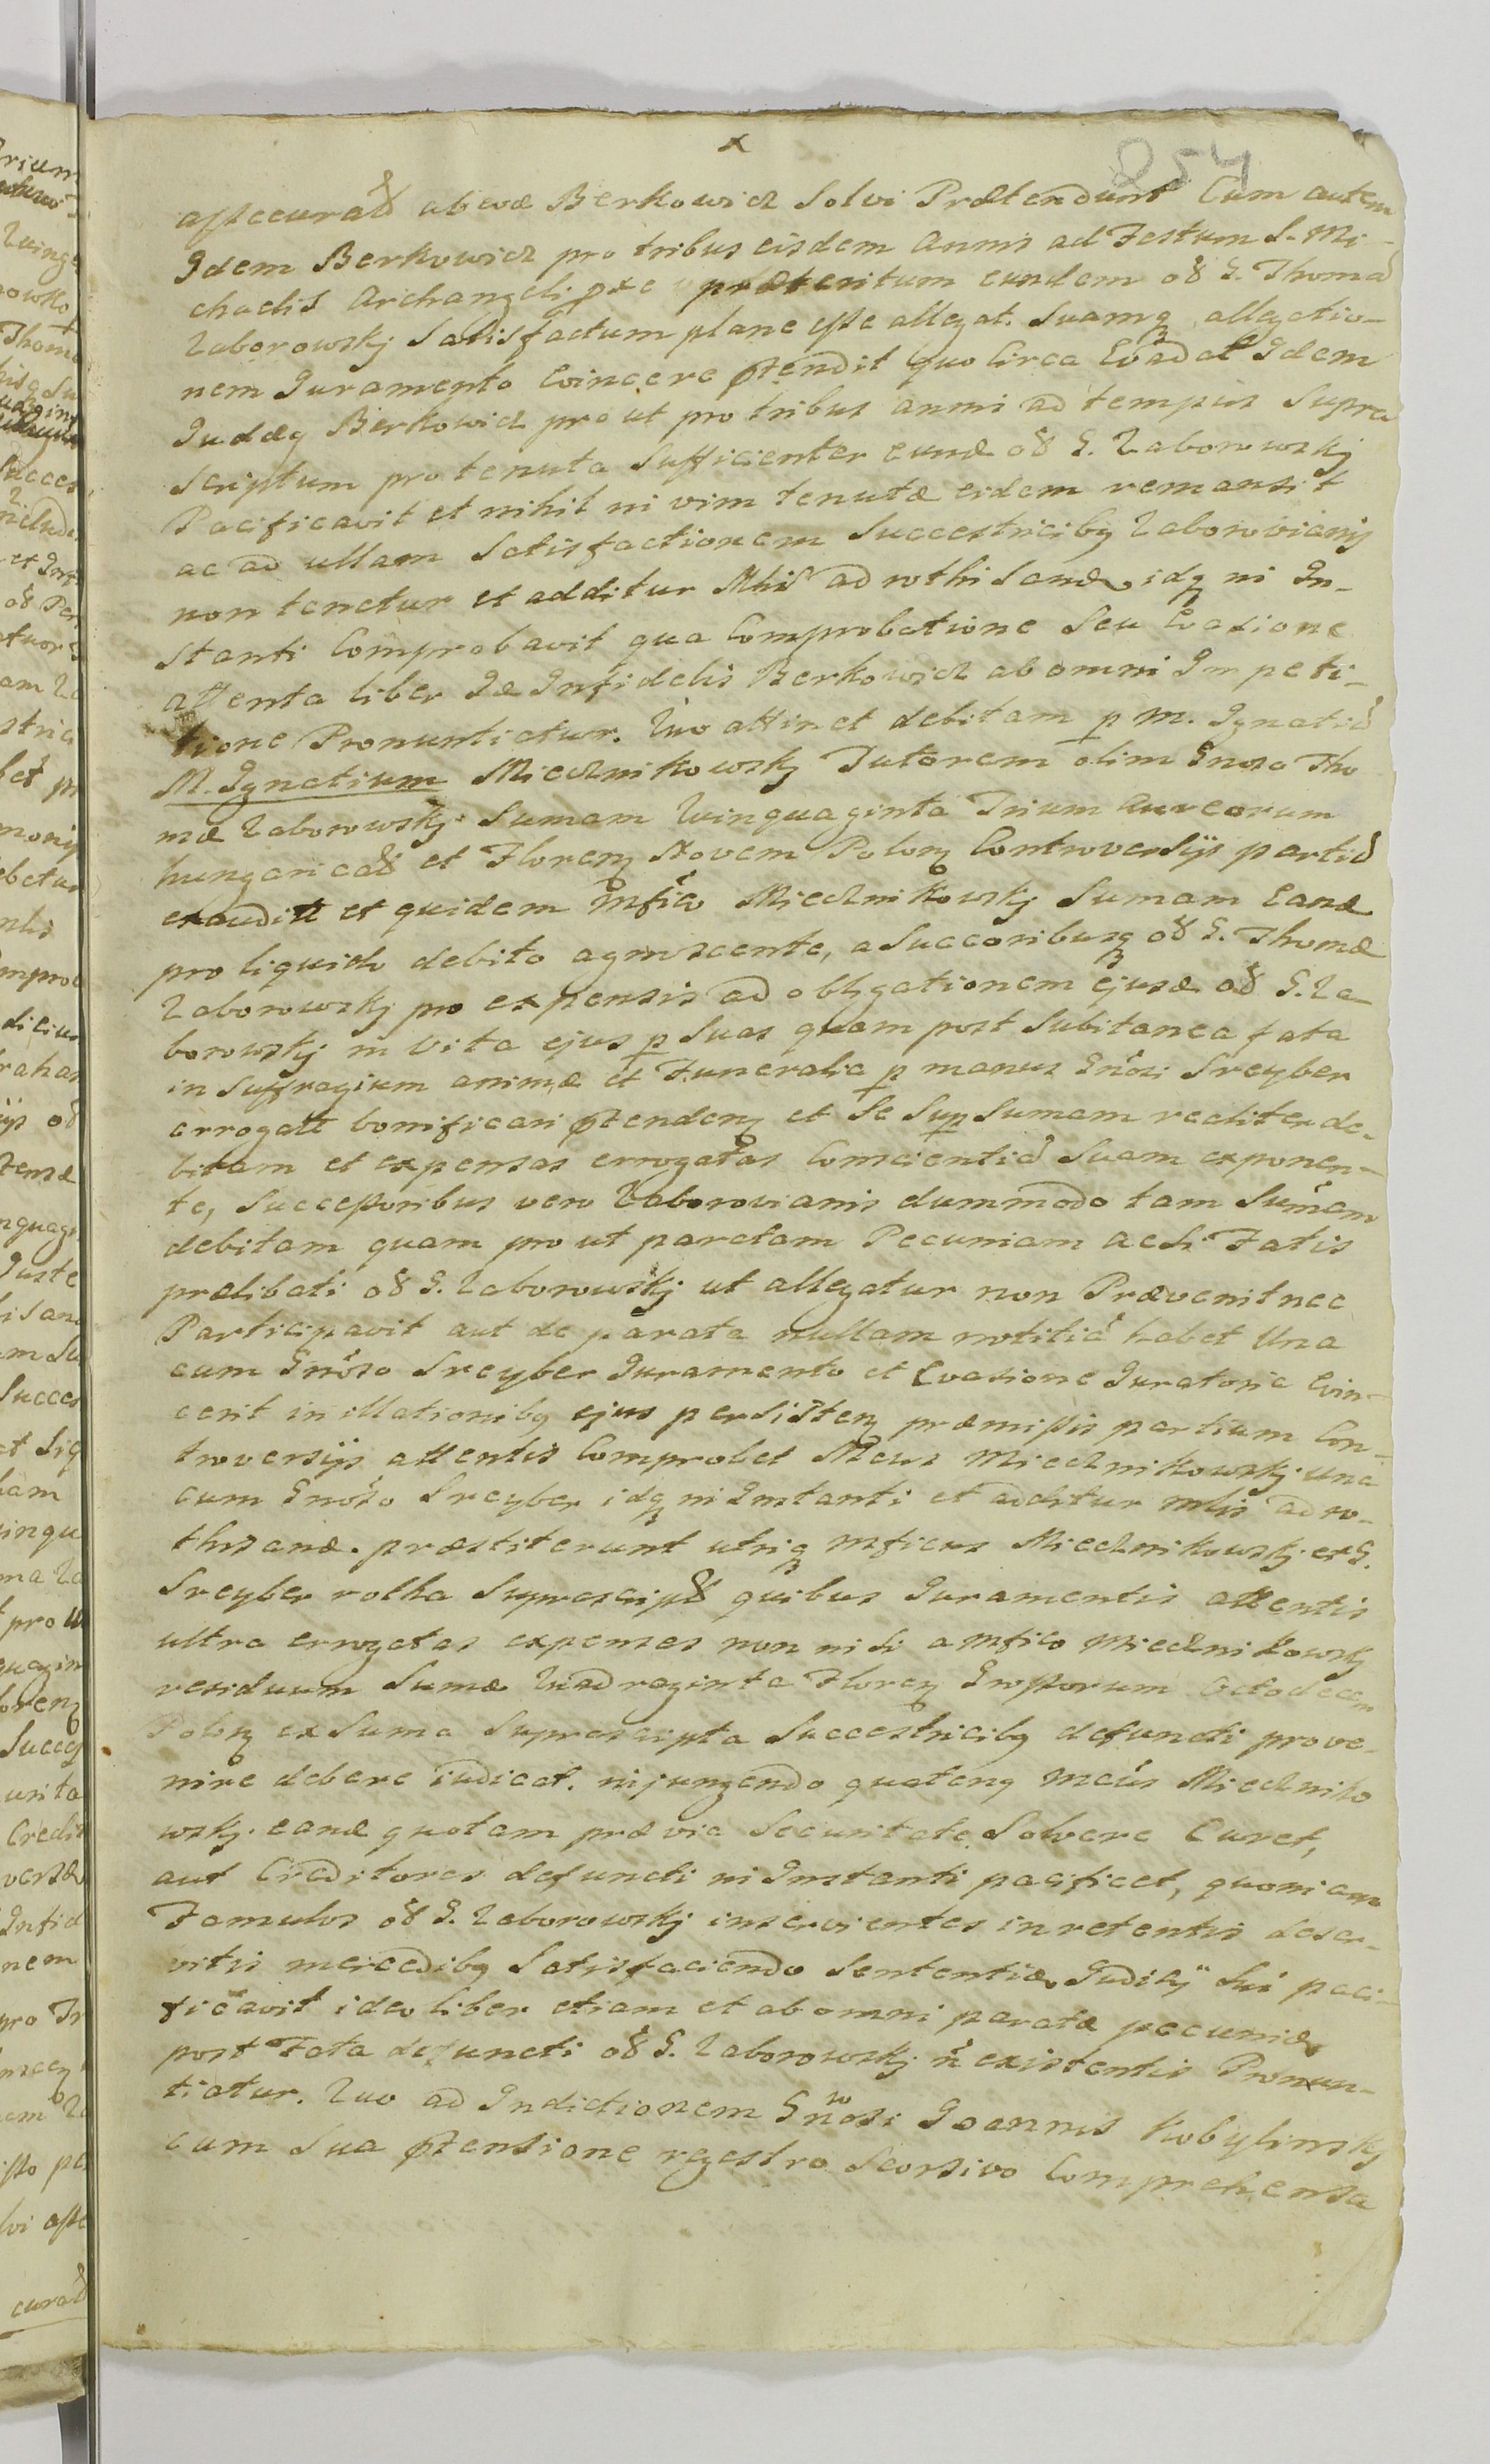 x
254
assecurat ab eod Berkowicz Solvi Prætendunt Cum autem
Idem Berkowicz pro tribus eisdem Annis ad Festum S. Mi-
chaelis Archangeli præteritum eundem oß G. Thomã
Zaborowskj Satisfactum plane esse allegat. Suamq allegatio-
nem Juramento Evincere prtendit quo Circa Evadat Idem
Judæq Berkowicz prout pro tribus anni ad tempus Supra
Scriptum pro tenuta Sufficienter eund oß G. Zaborowskj
Pacificavit et nihil ni vim tenutæ eidem remansit
ac ad ullam Satisfactionem Succestricibq Zaborovianis
non tenetur et additur Mhis ad rothisand, idq ni In-
stanti Comprobavit qua Comprobatione Seu Evasione
attenta liber Id Infidelis Berkowicz ab omni Impeti-
tione Pronuntiatur. Quo attinet debitam p M. Ignatiũ
M. Ignatium Miecznikowskj Tutorem olim Gnoso Tho
mæ Zaborowskj Sumam Quinquaginta Trium Aureorum
hungaricalß et Florenq Novem Polonq Controversijs partiũ
exaudit et quidem Mfico Miecznikowskj Sumam Eand
pro liquido debito agnoscente, a Succoribusq oß G. Thomæ
Zaborowskj pro expensis ad obligationem ejusd oß G. Za-
borowskj in Vita ejus p Suas quam post Subitanea fata
in Suffragium animæ et Funeralia p manus Gnosi Sreyber
errogatt bonificari prtendenq et Se Sup Sumam realiter de-
bitam et expensas errogatas Conscientiã Suam exponen-
te, Successoribus vero Zaborovianis dummodo tam Sumam
debitam quam prout paratam Pecuniam acsi Fatis
prælibati oß G. Zaborowskj ut allegatur non Prævenit nec
Participavit aut de parata nullam notitiã habet Una
cum Gnoso Sreyber Juramento et Evasione Juratoria Evin-
cerit in illationibq ejus persistenq præmissis partium Con-
troversijs attentis Comprobet Mcus Miecznikowskj una
cum Gnoso Sreyber idq ni Instanti et additur Mhis ad ro-
thisand. præstiterunt utriq Mficus Miecznikowskj et G.
Sreyber rotha Suprascripß quibus Juramentis attentis
ultra errogatas expenses non nisi a Mfico Miecznikowskj
residuum Sumæ Quadraginta Florenq Grossorum Octodecem
Polonq ex Suma Suprascripta Succestricibq defuncti prove-
nire debere iudicat. nijungendo quatenq Mcus Mieczniko
wskj. eand quotam prævia Securitate Solvere Curet,
aut Creditores defuncti ni Instanti pacificet, quoniam
Famulos oß G. Zaborowskj inservientes in retentis deser-
vitis mercedibq Satisfaciendo Sententiæ Judicij Sui paci-
ficavit ideo liber etiam et ab omni paratæ pecuniæ
post Fata defuncti oß G. Zaborowskj ñ existentis Pronun-
tiatur. Quo ad Indictionem Gnosi Joannis Kobylinskj
cum Sua prtensione regestro Seorsivo Comprehensa